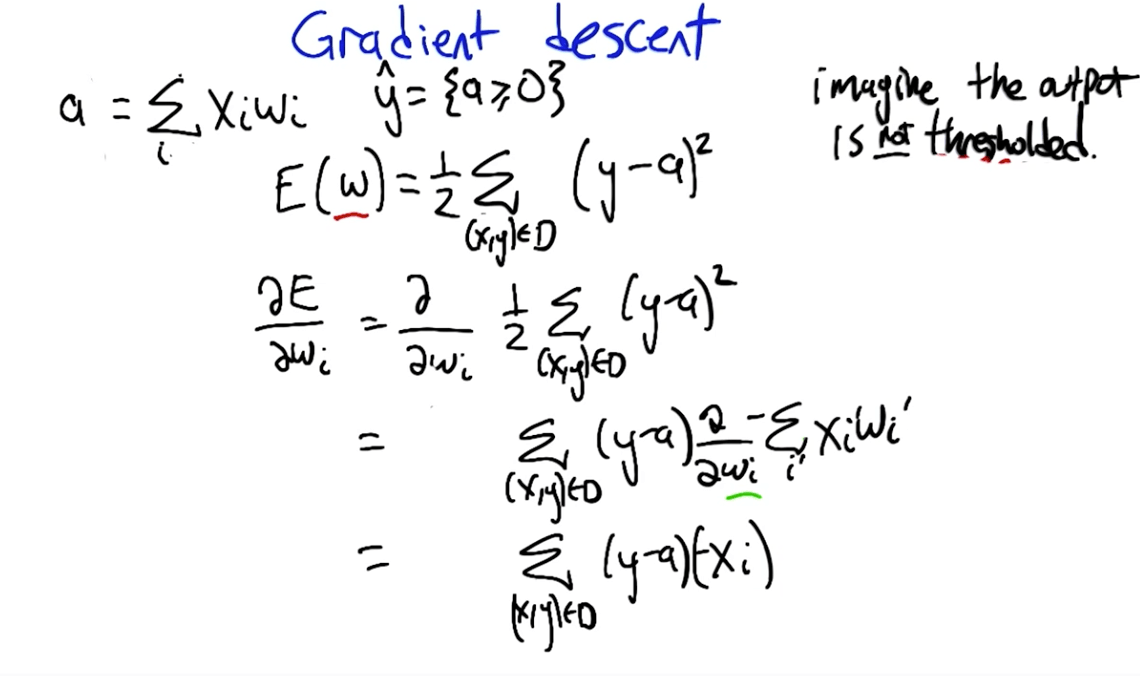 Gradient descent
a = Σ_i x_i w_i   ŷ = {a ≥ 0}
imagine the output
is not thresholded.
E(w) = 1/2 Σ_(x,y)∈D (y-a)²
∂E/∂w_i = ∂/∂w_i 1/2 Σ_(x,y)∈D (y-a)²
= Σ_(x,y)∈D (y-a) ∂/∂w_i -Σ_i' x_i' w_i'
= Σ_(x,y)∈D (y-a)(-x_i)